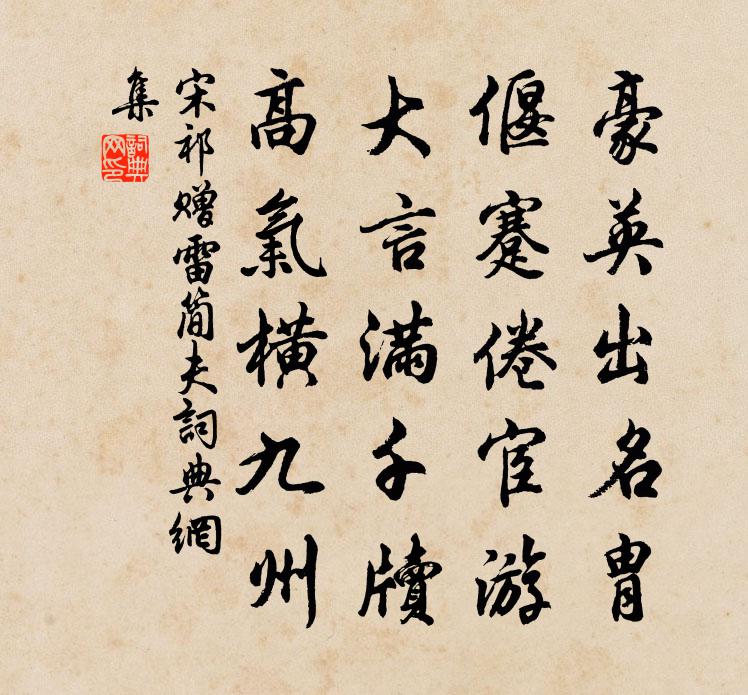 豪英出名胄
偃蹇倦宦游
大言满千牍
高氣橫九州
宋祁赠雷简夫詞典網
集
詞典
网印